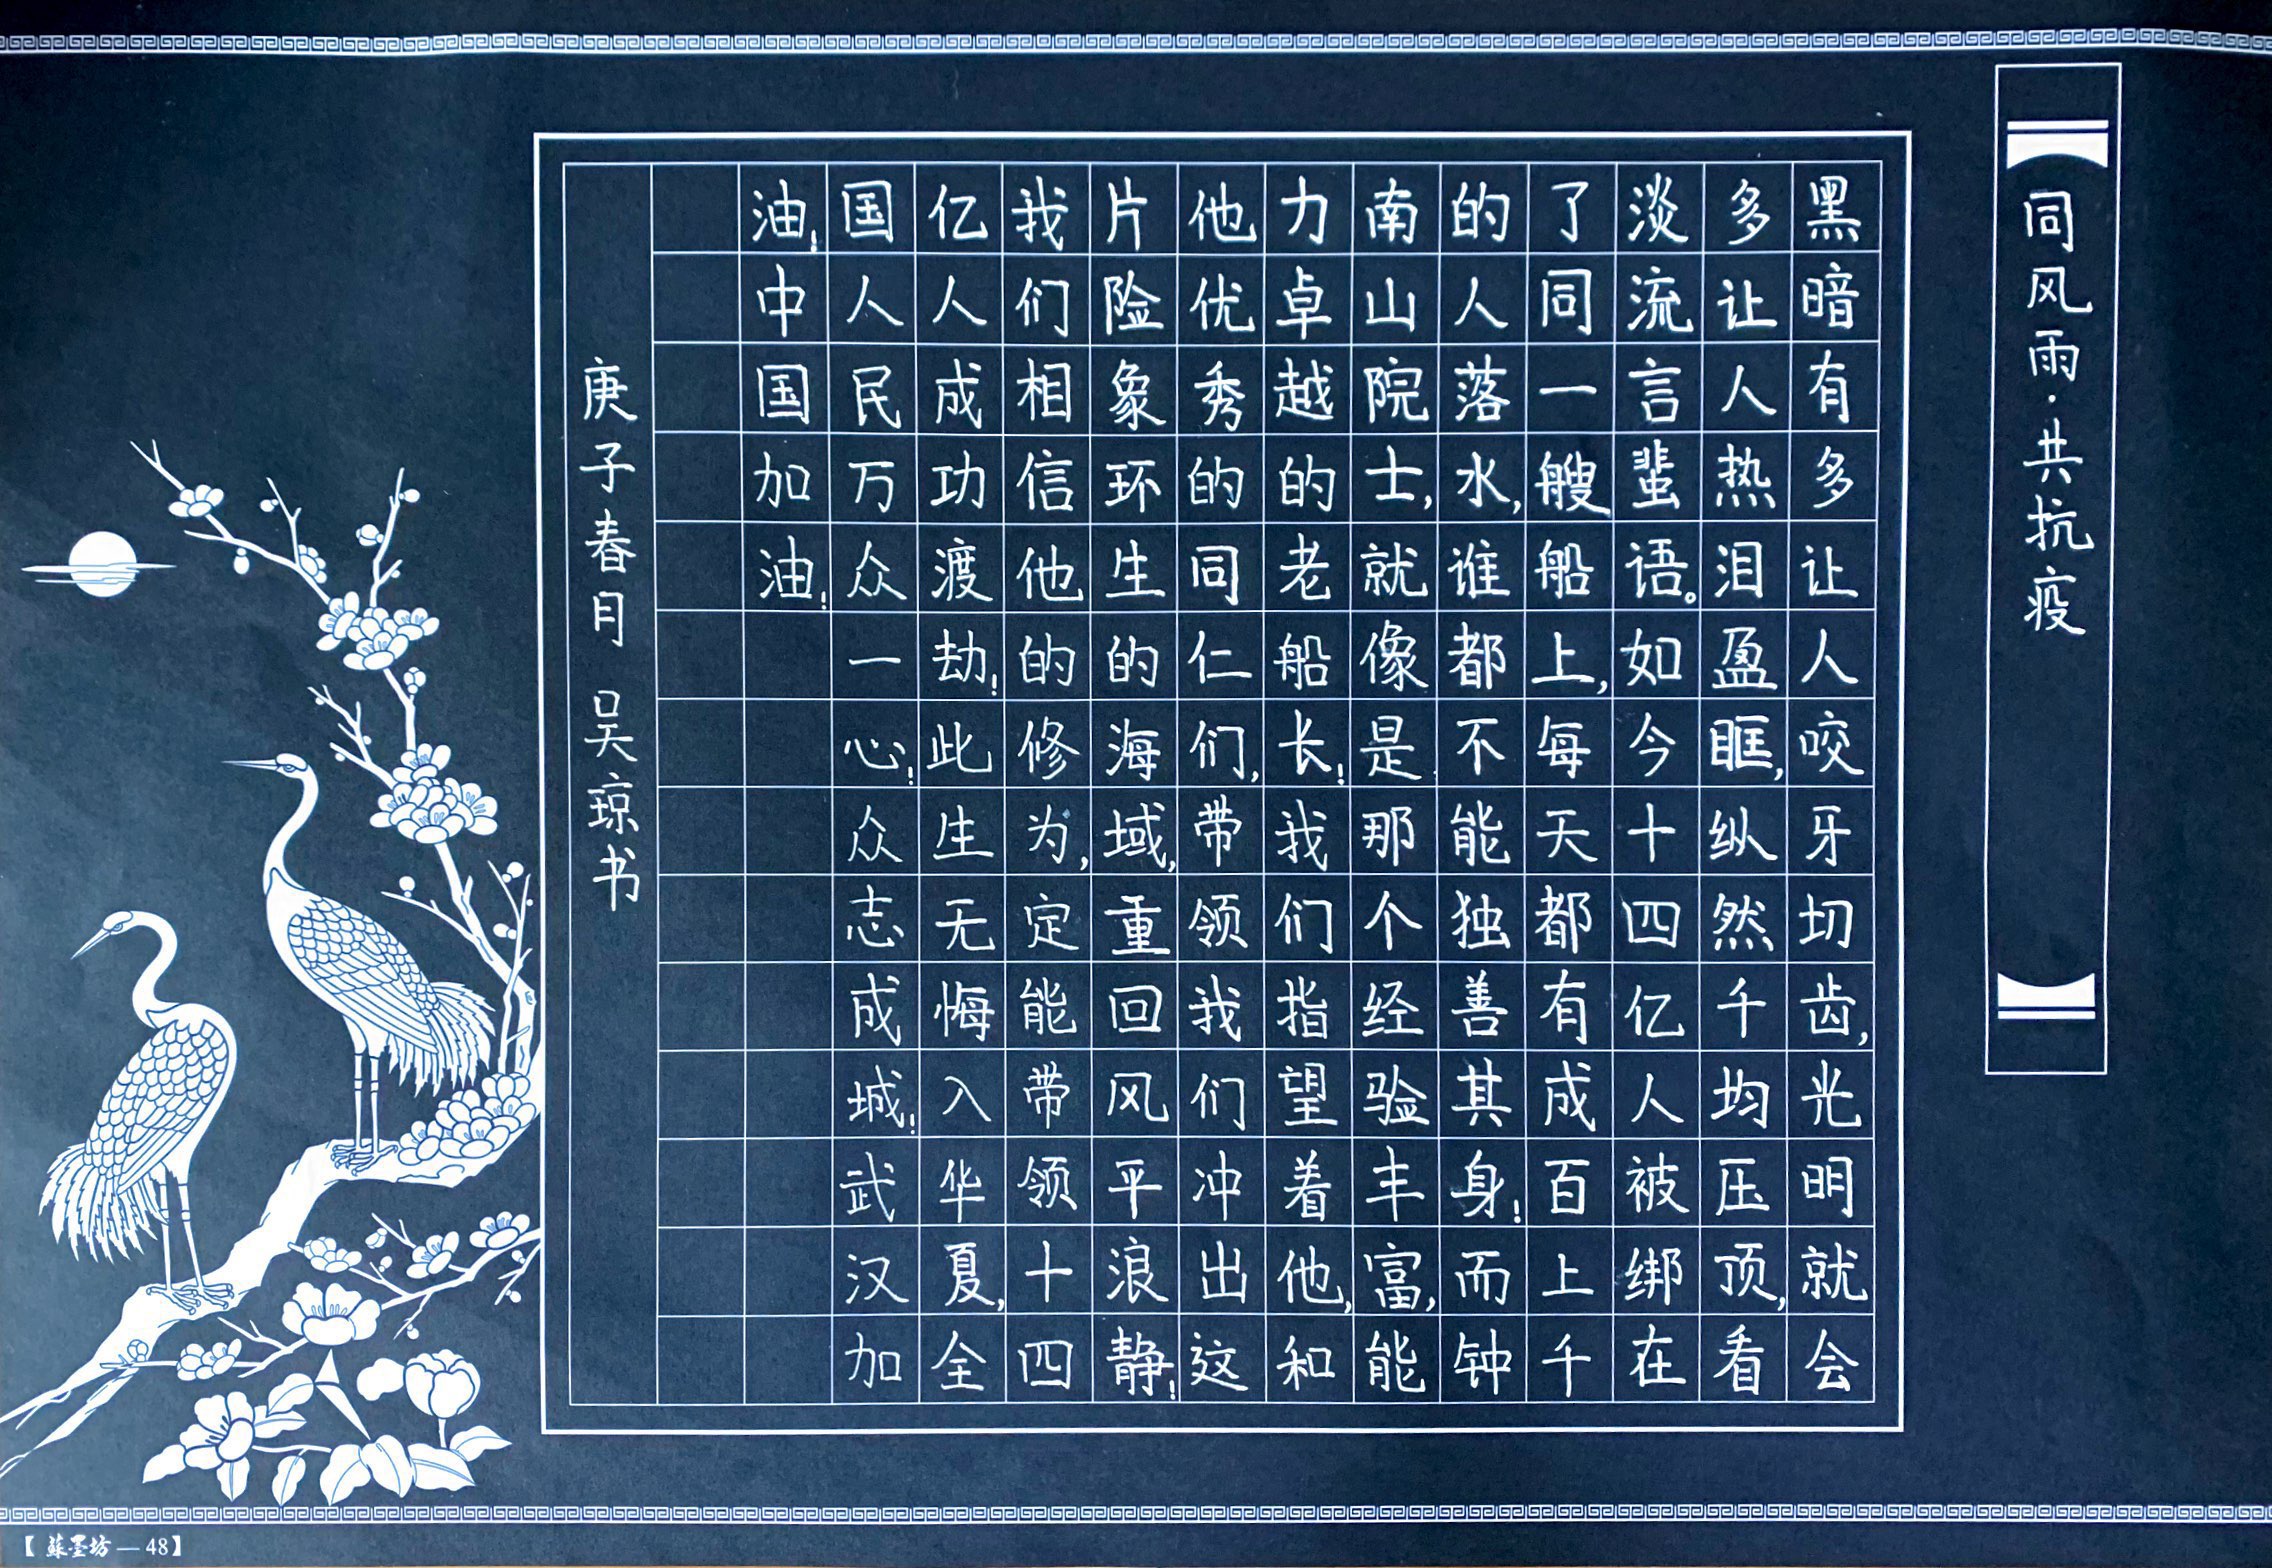 同风雨·共抗疫
黑暗有多让人咬牙切齿,光明就会
多让人热泪盈眶,纵然千均压顶,看
淡流言蜚语。如今十四亿人被绑在
了同一艘船上,每天都有成百上千
的人落水,谁都不能独善其身!而钟
南山院士,就像是那个经验丰富,能
力卓越的老船长!我们指望着他,和
他优秀的同仁们,带领我们冲出这
片险象环生的海域,重回风平浪静!
我们相信他的修为,定能带领十四
亿人成功渡劫!此生无悔入华夏,全
国人民万众一心!众志成城!武汉加
油!中国加油!
庚子春月 吴琼书
【 蘇墨坊 — 48】